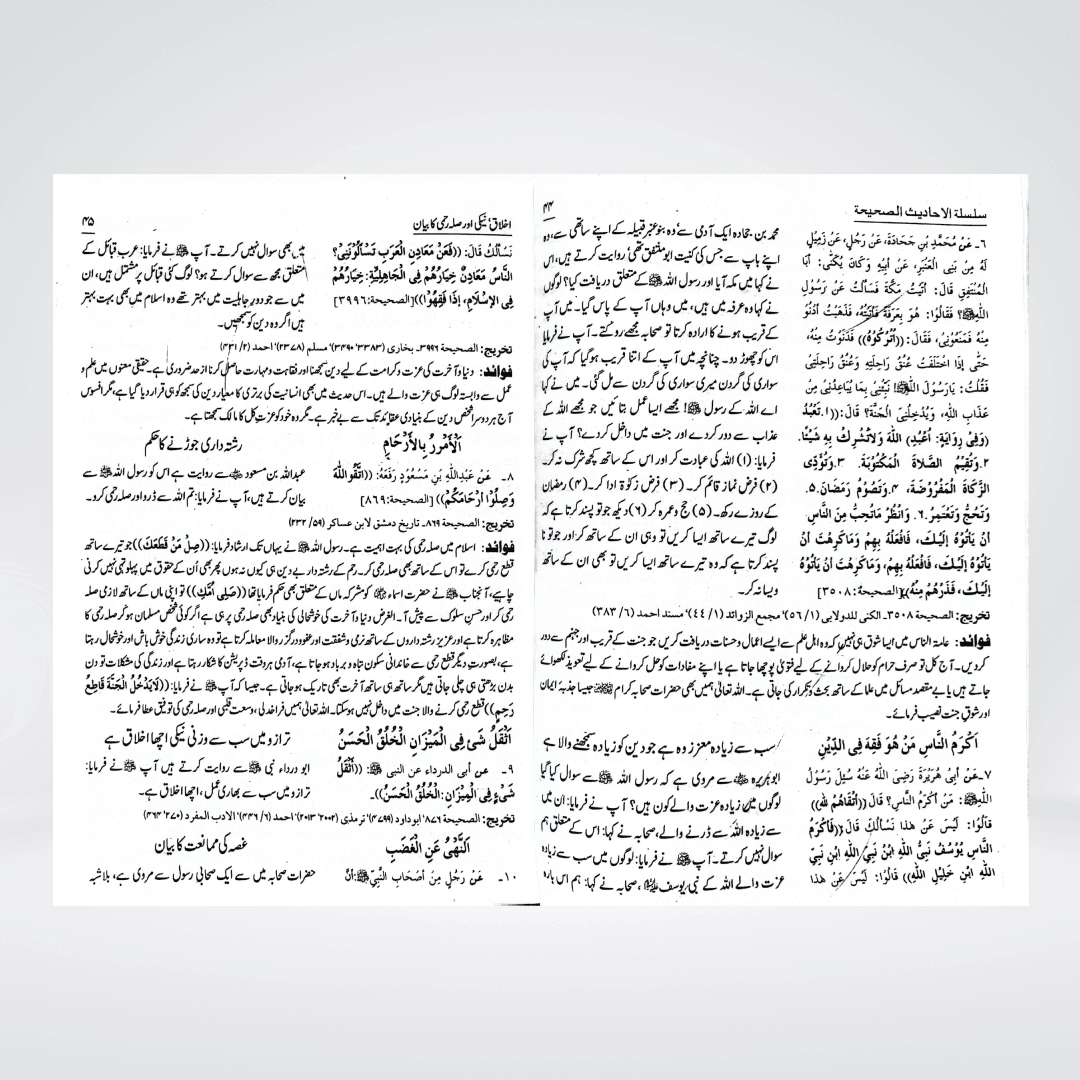 سلسلة الاحادیث الصحیحة
۴۴
٦۔ عَنْ مُحَمَّدِ بْنِ جَحَادَةَ، عَنْ رَجُلٍ، عَنْ زَمِيْلٍ
لَهُ مِنْ بَنِي الْعَنْبَرِ، عَنْ أَبِيْهِ وَكَانَ يُكَنَّى: أَبَا
الْمُنْتَفِقِ قَالَ: أَتَيْتُ مَكَّةَ فَسَأَلْتُ عَنْ رَسُوْلِ
اللهِ ﷺ؟ فَقَالُوْا: هُوَ بِعَرَفَةَ فَأَتَيْتُهُ، فَذَهَبْتُ أَدْنُوْ
مِنْهُ فَمَنَعُوْنِي، فَقَالَ: ((أُتْرُكُوْهُ)) فَدَنَوْتُ مِنْهُ،
حَتّٰى إِذَا اخْتَلَفَتْ عُنُقُ رَاحِلَتِهِ وَعُنُقُ رَاحِلَتِي
فَقُلْتُ: يَارَسُوْلَ اللهِ ﷺ! نَبِّئْنِي بِمَا يُبَاعِدُنِيْ مِنْ
عَذَابِ اللهِ، وَيُدْخِلُنِي الْجَنَّةَ؟ قَالَ: ((۱۔تَعْبُدُ
(وَفِيْ رِوَايَةٍ: أُعْبُدِ) اللهَ وَلَاتُشْرِكْ بِهِ شَيْئًا.
۲۔وَتُقِيْمُ الصَّلَاةَ الْمَكْتُوْبَةَ. ۳۔وَتُؤَدِّي
الزَّكَاةَ الْمَفْرُوْضَةَ، ۴۔وَتَصُوْمُ رَمَضَانَ. ۵۔
وَتَحُجُّ وَتَعْتَمِرُ. ٦۔ وَانْظُرْ مَاتُحِبُّ مِنَ النَّاسِ
أَنْ يَأْتُوْهُ إِلَيْكَ، فَافْعَلْهُ بِهِمْ، وَمَاكَرِهْتَ أَنْ
يَأْتُوْهُ إِلَيْكَ، فَذَرْهُمْ مِنْهُ))[الصحيحة:۳۵۰۸]
محمد بن جحادہ ایک آدمی سے وہ بنو عنبر قبیلہ کے اپنے ساتھی سے، وہ
اپنے باپ سے جس کی کنیت ابو منتفق تھی روایت کرتے ہیں، اس
نے کہا میں مکہ آیا اور رسول اللہ ﷺ کے متعلق دریافت کیا؟ لوگوں
نے کہا وہ عرفہ میں ہیں، میں وہاں آپ کے پاس گیا۔ میں آپ
کے قریب ہونے کا ارادہ کرتا تو صحابہ مجھے روکتے۔ آپ نے فرمایا
اس کو چھوڑ دو۔ چنانچہ میں آپ کے اتنا قریب ہو گیا کہ آپ کی
سواری کی گردن میری سواری کی گردن سے مل گئی۔ میں نے کہا
اے اللہ کے رسول ﷺ! مجھے ایسا عمل بتائیں جو مجھے اللہ کے
عذاب سے دور کر دے اور جنت میں داخل کر دے؟ آپ نے
فرمایا: (۱) اللہ کی عبادت کر اور اس کے ساتھ کچھ شرک نہ کر۔
(۲) فرض نماز قائم کر۔ (۳) فرض زکوٰۃ ادا کر۔ (۴) رمضان
کے روزے رکھ۔ (۵) حج و عمرہ کر (۶) دیکھ جو تو پسند کرتا ہے کہ
لوگ تیرے ساتھ ایسا کریں تو وہی ان کے ساتھ کر اور جو تو نا
پسند کرتا ہے کہ وہ تیرے ساتھ ایسا کریں تو بھی ان کے ساتھ
ویسا نہ کر۔
تخریج: الصحیحة ۳۵۰۸۔ الکنی للدولابی (۱/ ۵۶)' مجمع الزوائد (۱/ ۴۴)' مسند احمد (۶/ ۳۸۳)
فوائد: عامۃ الناس میں ایسا شوق ہی نہیں کہ وہ اہل علم سے ایسے اعمال و حسنات دریافت کریں جو جنت کے قریب اور جہنم سے دور
کر دیں۔ آج کل تو صرف حرام کو حلال کروانے کے لیے فتویٰ پوچھا جاتا ہے یا اپنے مفادات کو حل کروانے کے لیے تعویذ لکھوائے
جاتے ہیں یا بے مقصد مسائل میں علما کے ساتھ بحث و تکرار کی جاتی ہے۔ اللہ تعالیٰ ہمیں بھی حضرات صحابہ کرام جیسا جذبۂ ایمان
اور شوقِ جنت نصیب فرمائے۔
اَكْرَمُ النَّاسِ مَنْ هُوَ فَقِهَ فِي الدِّيْنِ
سب سے زیادہ معزز وہ ہے جو دین کو زیادہ سمجھنے والا ہے
۷۔عَنْ أَبِي هُرَيْرَةَ رَضِيَ اللهُ عَنْهُ سُئِلَ رَسُوْلُ
اللهِ ﷺ: مَنْ أَكْرَمُ النَّاسِ؟ قَالَ ((أَتْقَاهُمْ لِلهِ))
قَالُوْا: لَيْسَ عَنْ هٰذَا نَسْأَلُكَ قَالَ ((فَأَكْرَمُ
النَّاسِ يُوْسُفُ نَبِيُّ اللهِ ابْنُ نَبِيِّ اللهِ ابْنِ نَبِيِّ
اللهِ ابْنِ خَلِيْلِ اللهِ)) قَالُوْا: لَيْسَ عَنْ هٰذَا
ابو ہریرہ سے مروی ہے کہ رسول اللہ ﷺ سے سوال کیا گیا
لوگوں میں زیادہ عزت والے کون ہیں؟ آپ نے فرمایا: ان میں
سے زیادہ اللہ سے ڈرنے والے، صحابہ نے کہا: اس کے متعلق ہم
سوال نہیں کرتے۔ آپ ﷺ نے فرمایا: لوگوں میں سب سے زیادہ
عزت والے اللہ کے نبی یوسف، صحابہ نے کہا: ہم اس بارہ
اخلاق، نیکی اور صلہ رحمی کا بیان
۴۵
نَسْأَلُكَ قَالَ: ((فَعَنْ مَعَادِنِ الْعَرَبِ تَسْأَلُوْنِي؟
النَّاسُ مَعَادِنُ خِيَارُهُمْ فِي الْجَاهِلِيَّةِ: خِيَارُهُمْ
فِي الْإِسْلَامِ، إِذَا فَقِهُوْا))[الصحيحة:۳۹۹۶]
میں بھی سوال نہیں کرتے۔ آپ ﷺ نے فرمایا: عرب قبائل کے
متعلق مجھ سے سوال کرتے ہو؟ لوگ کئی قبائل پر مشتمل ہیں، ان
میں سے جو دورِ جاہلیت میں بہتر تھے وہ اسلام میں بھی بہت بہتر
ہیں اگر وہ دین کو سمجھیں۔
تخریج: الصحیحة ۳۹۹۶۔ بخاری (۳۳۸۳' ۳۴۹۰)' مسلم (۲۳۷۸)' احمد (۲/ ۴۳۱)
فوائد: دنیا و آخرت کی عزت و کرامت کے لیے دین سمجھنا اور فقاہت و مہارت حاصل کرنا از حد ضروری ہے۔ حقیقی معنوں میں علم و
عمل سے وابستہ لوگ ہی عزت والے ہیں۔ اس حدیث میں بھی انسانیت کی برتری کا معیار دین کی سمجھ کو ہی قرار دیا گیا ہے، مگر افسوس
آج ہر دوسرا شخص دین کے بنیادی عقائد تک سے بے خبر ہے۔ مگر وہ خود کو عزتِ کل کا مالک سمجھتا ہے۔
اَلْأَمْرُ بِالْأَرْحَامِ
رشتہ داری جوڑنے کا حکم
۸۔ عَنْ عَبْدِاللهِ بْنِ مَسْعُوْدٍ رَفَعَهُ: ((اتَّقُوا اللهَ
وَصِلُوْا أَرْحَامَكُمْ)) [الصحيحة:۸۶۹]
عبداللہ بن مسعود سے روایت ہے اس کو رسول اللہ ﷺ سے
بیان کرتے ہیں، آپ نے فرمایا: تم اللہ سے ڈرو اور صلہ رحمی کرو۔
تخریج: الصحیحة ۸۶۹۔ تاریخ دمشق لابن عساکر (۵۹/ ۲۳۲)
فوائد: اسلام میں صلہ رحمی کی بہت اہمیت ہے۔ رسول اللہ ﷺ نے یہاں تک ارشاد فرمایا: ((صِلْ مَنْ قَطَعَكَ)) جو تیرے ساتھ
قطع رحمی کرے تو اس کے ساتھ بھی صلہ رحمی کر۔ رحم کے رشتہ دار بے دین ہی کیوں نہ ہوں پھر بھی اُن کے حقوق میں پہلو تہی نہیں کرنی
چاہیے، آنجناب ﷺ نے حضرت اسماء کو مشرکہ ماں کے متعلق بھی حکم فرمایا تھا ((صَلِي أُمَّكِ)) تو اپنی ماں کے ساتھ لازمی صلہ
رحمی کر اور حسنِ سلوک سے پیش آ۔ الغرض دنیا و آخرت کی خوشحالی کی بنیاد بھی صلہ رحمی پر ہی ہے اگر کوئی شخص مسلمان ہو کر صلہ رحمی کا
مظاہرہ کرتا ہے اور عزیز رشتہ داروں کے ساتھ نرمی و شفقت اور عفو و درگزر والا معاملہ کرتا ہے تو وہ ساری زندگی خوش باش اور خوشحال رہتا
ہے، بصورتِ دیگر قطع رحمی سے خاندانی سکون تباہ و برباد ہو جاتا ہے، آدمی ہر وقت ڈپریشن کا شکار رہتا ہے اور زندگی کی مشکلات تو دن
بدن بڑھتی ہی چلی جاتی ہیں مگر ساتھ ہی ساتھ آخرت بھی تاریک ہو جاتی ہے۔ جیسا کہ آپ ﷺ نے فرمایا: ((لَايَدْخُلُ الْجَنَّةَ قَاطِعُ
رَحِمٍ)) قطع رحمی کرنے والا جنت میں داخل نہیں ہو سکتا۔ اللہ تعالیٰ ہمیں فراخدلی، وسعت قلبی اور صلہ رحمی کی توفیق عطا فرمائے۔
اَثْقَلُ شَيْءٍ فِي الْمِيْزَانِ الْخُلُقُ الْحَسَنُ
ترازو میں سب سے وزنی نیکی اچھا اخلاق ہے
۹۔ عن أبي الدرداء عن النبي ﷺ: ((أَثْقَلُ
شَيْءٍ فِي الْمِيْزَانِ: الْخُلُقُ الْحَسَنُ))۔
ابو درداء نبی ﷺ سے روایت کرتے ہیں آپ ﷺ نے فرمایا:
ترازو میں سب سے بھاری عمل، اچھا اخلاق ہے۔
تخریج: الصحیحة ۸۷۶' ابوداود (۴۷۹۹)' ترمذی (۲۰۰۲' ۲۰۱۳)' احمد (۶/ ۴۴۶)' الادب المفرد (۲۷۰' ۴۶۴)
اَلنَّهْيُ عَنِ الْغَضَبِ
غصہ کی ممانعت کا بیان
۱۰۔ عَنْ رَجُلٍ مِنْ أَصْحَابِ النَّبِيِّ ﷺ: أَنَّ
حضرات صحابہ میں سے ایک صحابی رسول سے مروی ہے، بلاشبہ